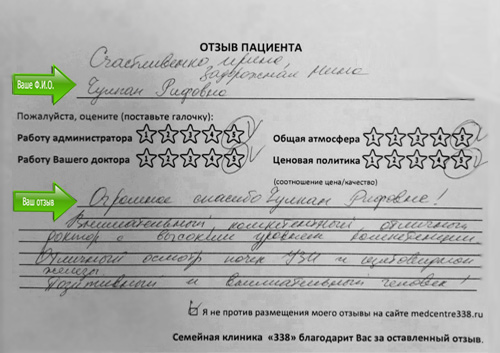 ОТЗЫВ ПАЦИЕНТА
Счастливенко Ирина,
Задорожная Нина
Ваше Ф.И.О.
Гулнап Рифовна
Пожалуйста, оцените (поставьте галочку):
Работу администратора 1 2 3 4 5
Общая атмосфера 1 2 3 4 5
Работу Вашего доктора 1 2 3 4 5
Ценовая политика 1 2 3 4 5
(соотношение цена/качество)
Ваш отзыв
Огромное спасибо Рифовне!
Внимательный компетентный отличный
доктор с высоким уровнем компетенции
Отличный осмотр почек УЗИ и щитовидной
железы.
Позитивный и внимательный человек!
Я не против размещения моего отзывы на сайте medcentre338.ru
Семейная клиника «338» благодарит Вас за оставленный отзыв.